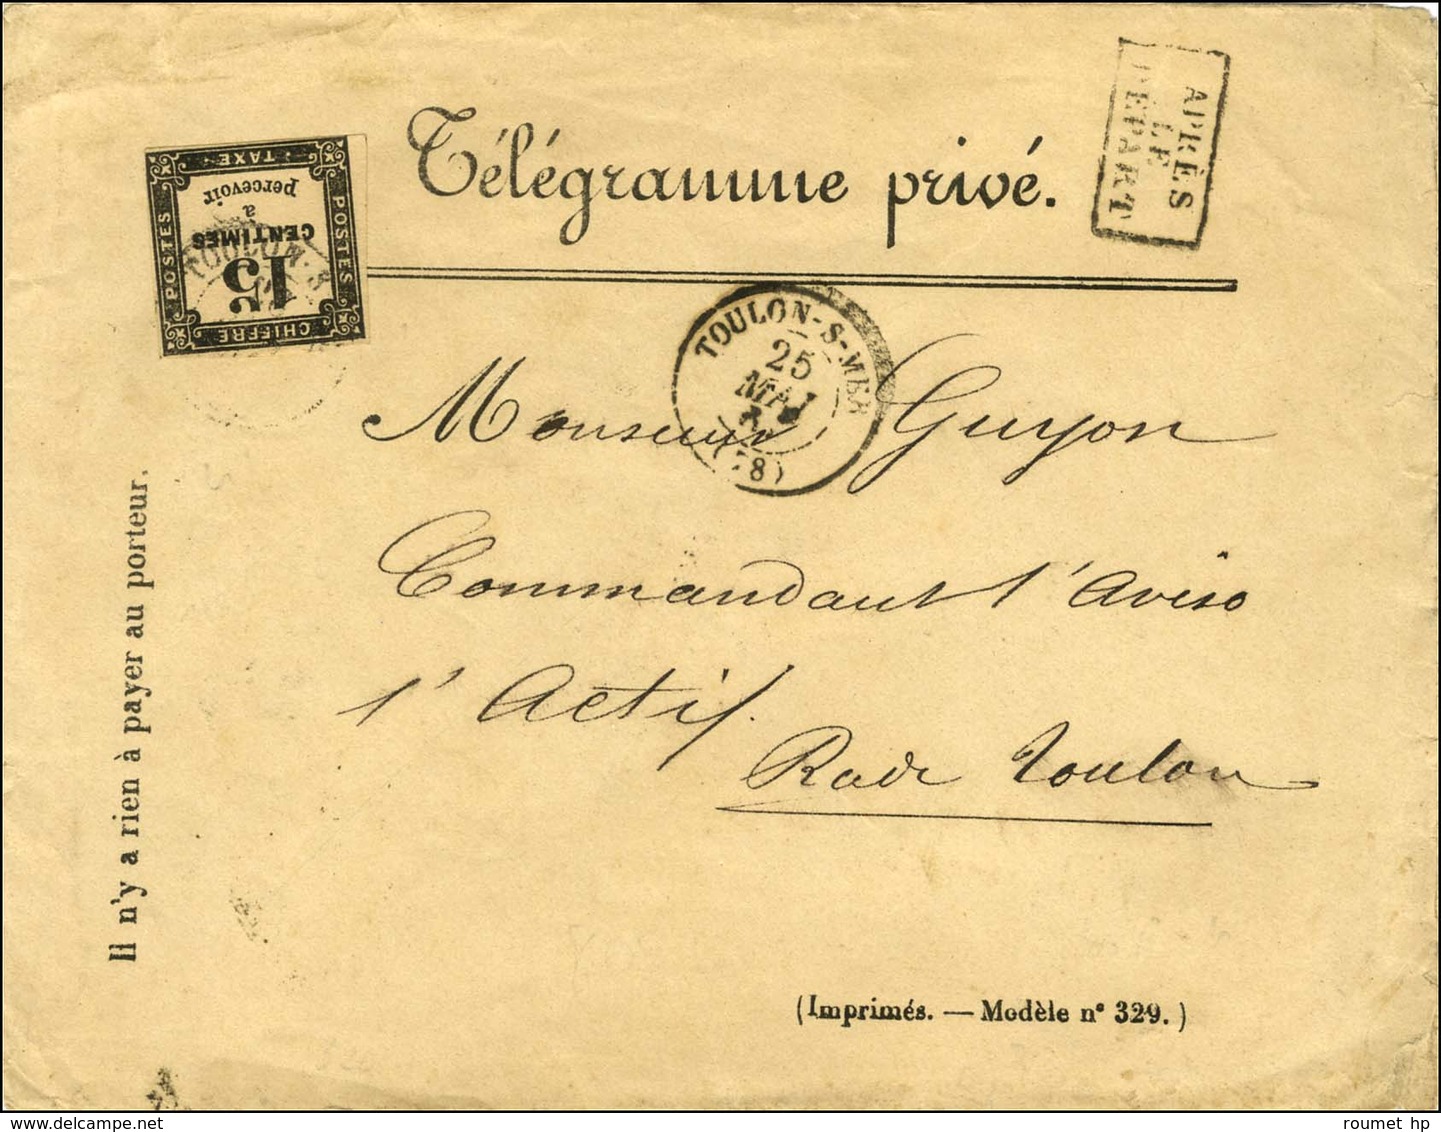 Télégramme privé.
APRÈS
LE
DÉPART
CHIFFRE
POSTES
POSTES
TAXE
15
CENTIMES
a
percevoir
TOULON-S
TOULON-S-MER
25
MAI
(78)
Monsieur Guyon
Commandant l'Aviso
l'Actif.
Rade Toulon
Il n'y a rien à payer au porteur.
(Imprimés. — Modèle n° 329.)
roumet hp